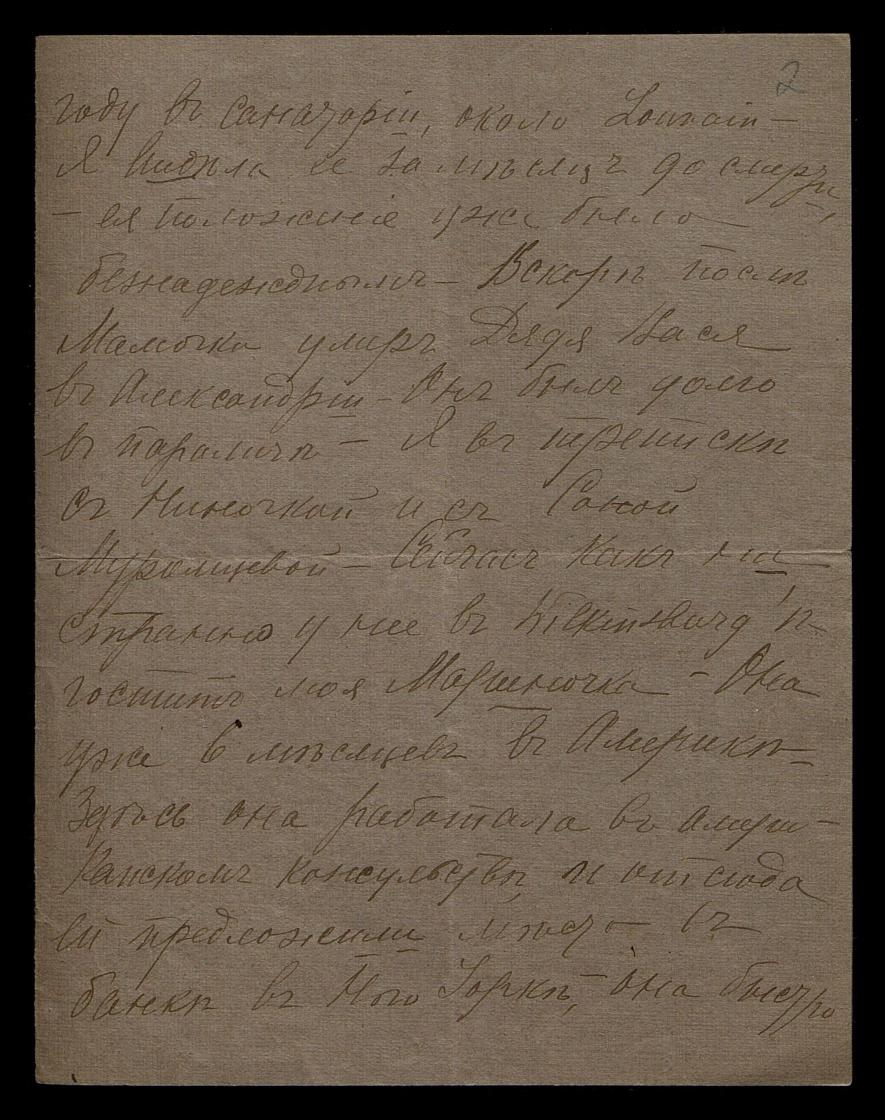 2
году въ санаторіи, около Louvain –
Я видѣла ее за мѣсяцъ до смерти,
– ея положеніе уже было
безнадежднымъ – Вскорѣ послѣ
Мамочки умеръ Дядя Вася
въ Александріи – Онъ былъ долго
въ параличѣ – Я въ перепискѣ
съ Ниночкой и съ Соней
Муромцевой – Сейчасъ какъ ни
странно у нее въ Wilkinsburg'ѣ
гоститъ моя Маришечка – Она
уже 6 мѣсяцевъ въ Америкѣ –
Здѣсь она работала въ амери-
канскомъ консульствѣ, и отсюда
ей предложили мѣсто въ
банкѣ въ Нью Іоркѣ, – она быстро